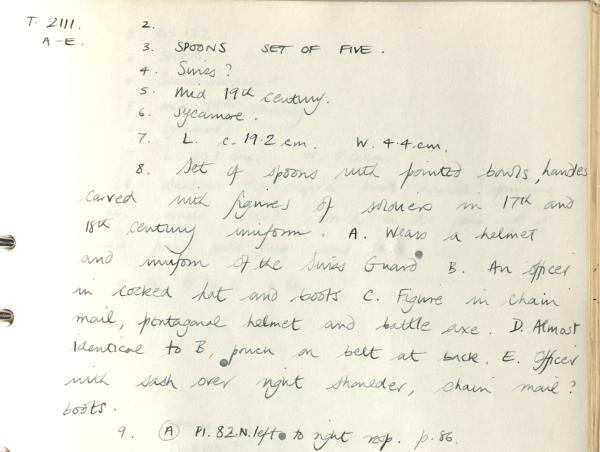 T. 2111. 2.
A-E.
3. SPOONS SET OF FIVE.
4. Swiss?
5. Mid 19th century.
6. Sycamore.
7. L. c. 19.2 cm. W. 4.4 cm.
8. Set of spoons with pointed bowls, handles
carved with figures of soldiers in 17th and
18th century uniform. A. Wears a helmet
and uniform of the Swiss Guard B. An officer
in cocked hat and boots C. Figure in chain
mail, pentagonal helmet and battle axe. D. Almost
identical to B, pouch on belt at back. E. Officer
with sash over right shoulder, chain mail?
boots.
9. (A) Pl. 82.N. left to right resp. p. 86.